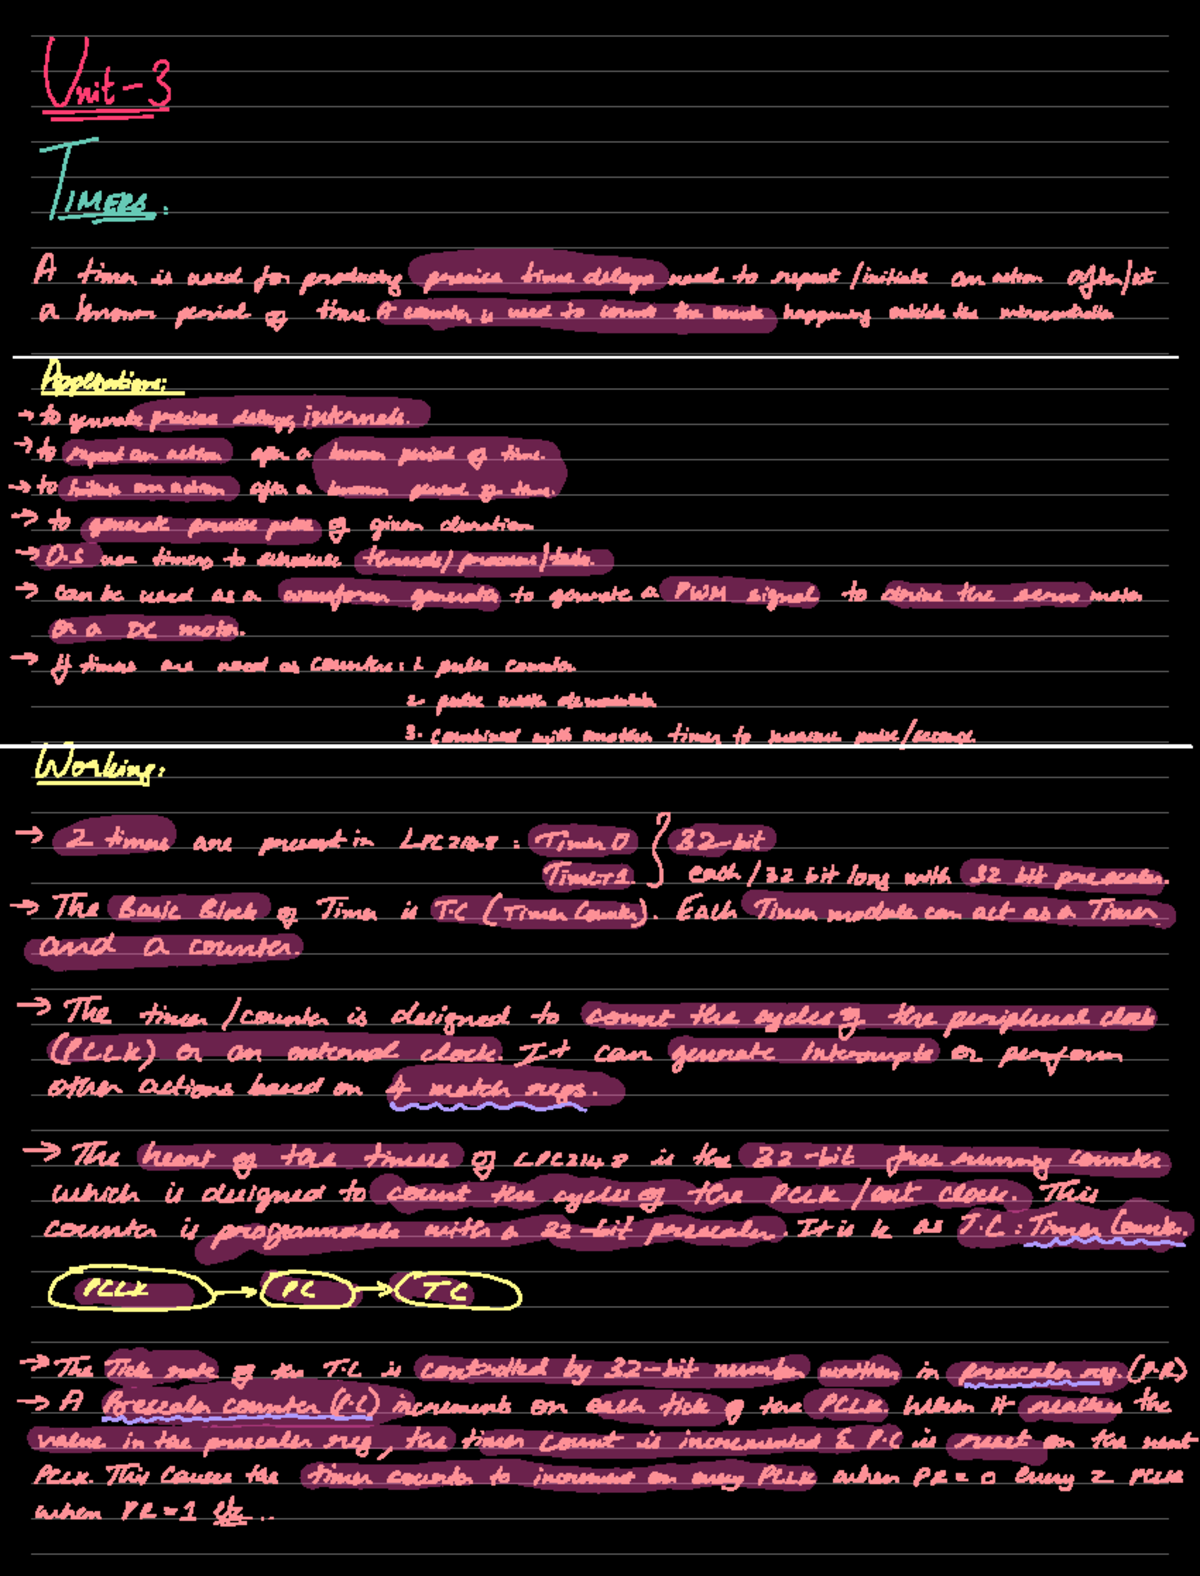 Unit-3
TIMERS:
A timer is used for producing precise time delays used to repeat/initiate an action after/at
a known period of time. A counter is used to count the events happening outside the microcontroller
Applications:
→ to generate precise delays, intervals.
→ to repeat an action after a known period of time.
→ to initiate an action after a known period of time.
→ to generate precise pulse of given duration
→ O.S use timers to schedule threads/processes/tasks.
→ can be used as a waveform generator to generate a PWM signal to drive the servo motor
or a DC motor.
→ If timers are used as counters: 1. pulse counter
2. pulse width demodulator
3. combined with another timer to measure pulse/second.
Working:
→ 2 timers are present in LPC2148 : Timer 0 } 32-bit
Timer 1. each/32 bit long with 32 bit prescaler.
→ The Basic Block of Timer is T.C (Timer Counter). Each Timer module can act as a Timer
and a counter.
→ The timer/counter is designed to count the cycles of the peripheral clock
(PCLK) or an external clock. It can generate Interrupts or perform
other actions based on 4 match regs.
→ The heart of the timers of LPC2148 is the 32-bit free running counter
which is designed to count the cycles of the PCLK/ext clock. This
counter is programmable with a 32-bit prescaler. It is k as T.C : Timer Counter.
PCLK → PC → TC
→ The Tick rate of the T.C is controlled by 32-bit number written in prescaler reg. (P.R)
→ A Prescaler counter (P.C) increments on each tick of the PCLK When it reaches the
value in the prescaler reg, the timer count is incremented & P.C is reset on the next
PCLK. This causes the timer counter to increment on every PCLK when PR = 0 every 2 PCLK
when PR = 1 etc...